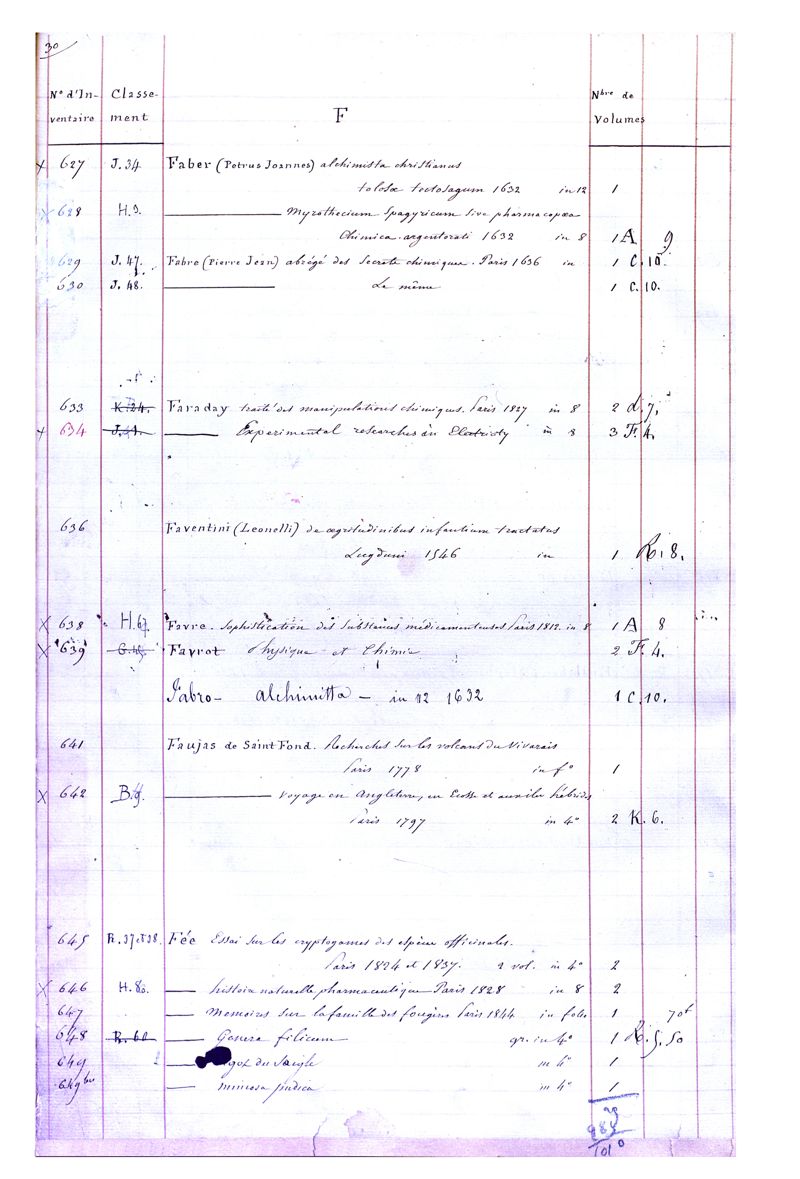 30
N° d'In- Classe- Nbre de
ventaire ment F Volumes
x 627 J. 34 Faber (Petrus Joannes) alchimista christianus
tolosæ tectosagum 1632 in 12 1
x 628 H. 9. Myrothecium Spagyricum sive pharmacopœa
Chimica. argentorati 1632 in 8 1 A 9
629 J. 47. Fabre (Pierre Jean) abrégé des Secrets chimiques. Paris 1636 in 1 C. 10.
630 J. 48. Le même 1 C. 10.
633 K. 24. Faraday traité des manipulations chimiques. Paris 1827 in 8 2 d. 7.
x 634 Experimental researches in Electricity in 8 3 F. 4.
636 Faventini (Leonelli) de ægritudinibus infantium tractatus
Lugduni 1546 in 1 R. 8.
x 638 H. 67. Favre. Sophistication des Substances médicamenteuses Paris 1812. in 8 1 A 8
x 639 Favrot Physique et Chimie 2 F. 4.
Fabro - alchimitta - in 12 1632 1 C. 10.
641 Faujas de Saint Fond. Recherches sur les volcans du Vivarais
Paris 1778 in f° 1
x 642 B. 9. Voyage en Angleterre, en Ecosse et aux iles hébrides
Paris 1797 in 4° 2 K. 6.
645 R. 37 et 38. Fée Essai sur les cryptogames des espèces officinales.
Paris 1824 et 1837. 2 vol. in 4° 2
x 646 H. 80. histoire naturelle pharmaceutique Paris 1828 in 8 2
647 Memoires sur la famille des fougères Paris 1844 in folio 1
648 R. 60 Genera filicum gr. in 4° 1 R. 5. 50
649 du Seigle in 4° 1
649 bis mimosa pudica in 4° 1
29